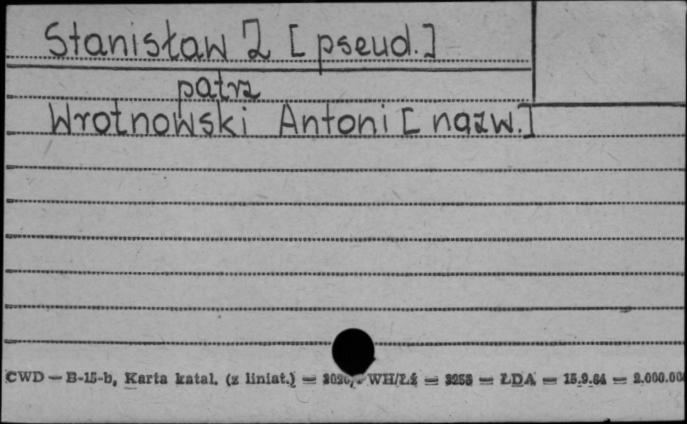 Stanisław Z [pseud.]
patrz
Wrotnowski Antoni [nazw.]
CWD — B-15-b, Karta katal. (z liniat.) — WH/Łź — — ŁDA — 15.9.64 — 2.000.00